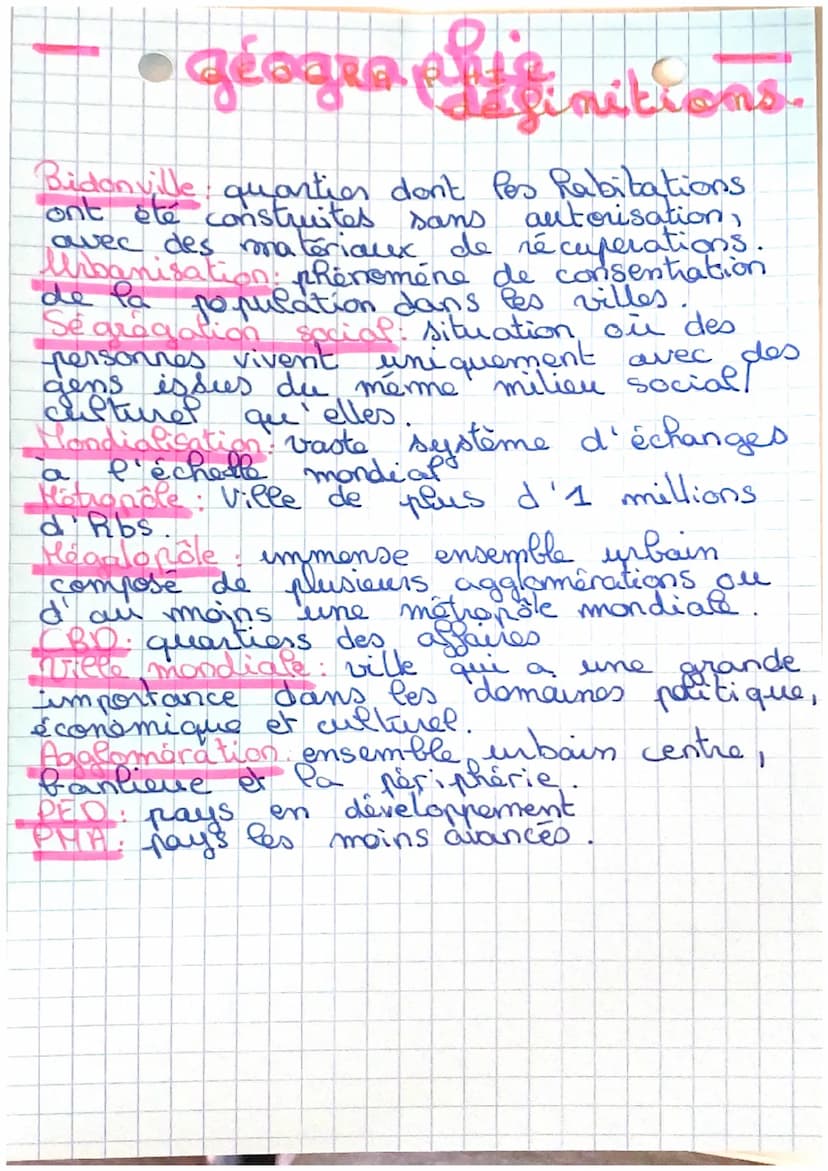 géographie
GÉOGRAPHIE
définitions.
Bidonville : quartier dont les habitations
ont été constuites sans autorisation,
avec des matériaux de récuperations.
Urbanisation : phénoméne de consentration
de la population dans les villes.
Ségrégation social : situation où des
personnes vivent uniquement avec des
gens issues du même milieu social/
culturel qu'elles.
Mondialisation : vaste système d'échanges
à l'échelle mondial
Métropôle : Ville de plus d'1 millions
d'hbs.
Mégalopôle : immense ensemble urbain
composé de plusieurs agglomérations ou
d'au moins une métropôle mondiale.
CBD : quartiers des affaires
Ville mondiale : ville qui a une grande
importance dans les domaines politique,
économique et culturel.
Agglomération : ensemble urbain centre,
banlieue et la périphérie.
PED : pays en développement
PMA : pays les moins avancés.